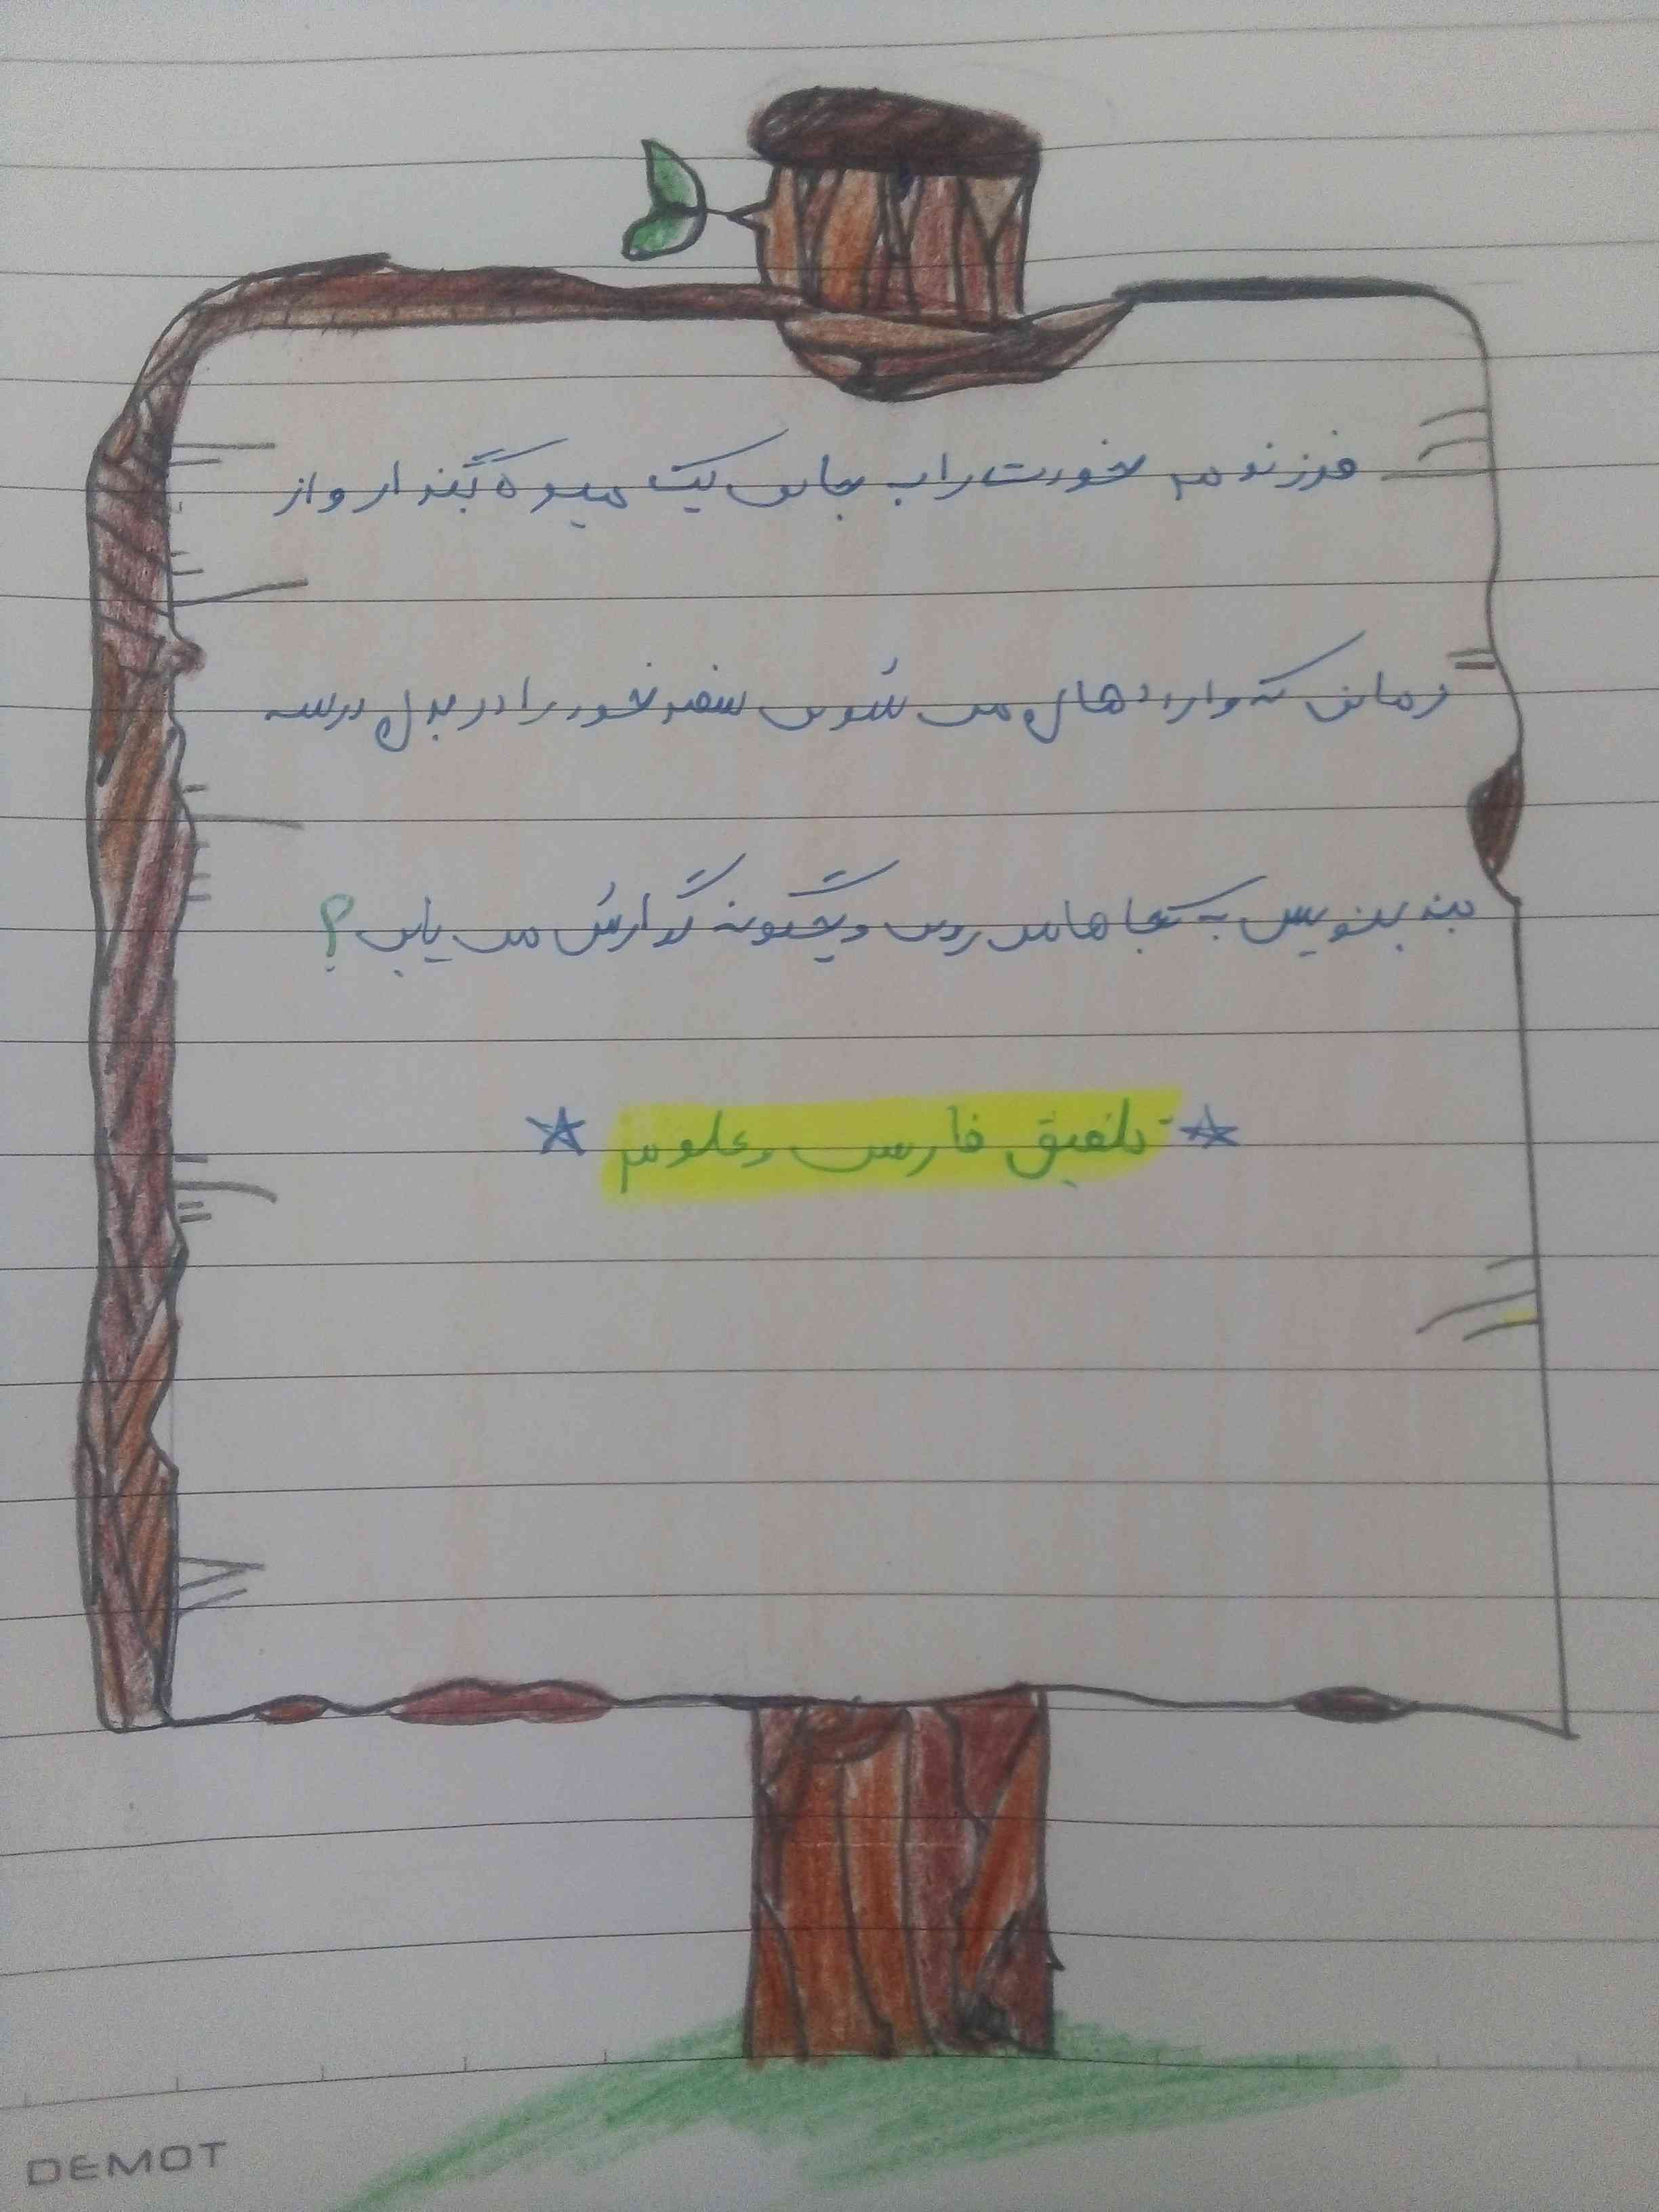 فرزندم خودت را به جای یک میوه بگذار و از
زمانی که وارد دهان می شوی سفر خود را در چند
بند بنویس به کجاها می روی و چگونه گوارش می یابی؟
تلفیق فارسی و علوم
DEMOT